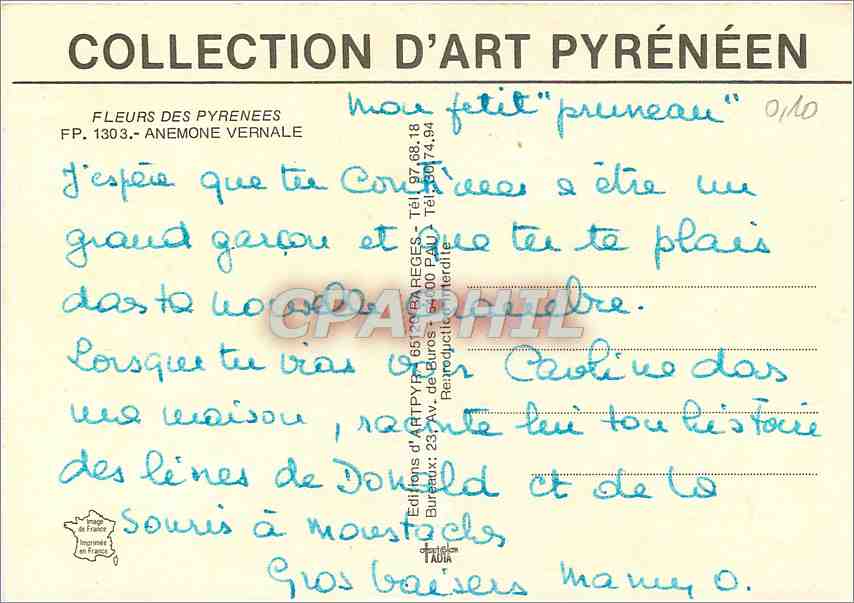 COLLECTION D'ART PYRÉNÉEN
FLEURS DES PYRENEES
FP. 1303.- ANEMONE VERNALE
0,10
Mon petit "pruneau"
J'espère que tu Continues a être un
grand garçon et que tu te plais
das ta nouvelle chambre.
Lorsque tu iras voir Caroline das
ma maison, raconte lui ton histoire
des livres de Donald et de la
Souris à moustaches
Gros baisers Mamy O.
Editions d'ARTPYR - 65120 BAREGES - Tél. 97.68.18
Bureaux: 23, Av. de Buros - 64000 PAU - Tél. 30.74.94
Reproduction interdite
CPAPHIL
Image
de France
Imprimée
en France